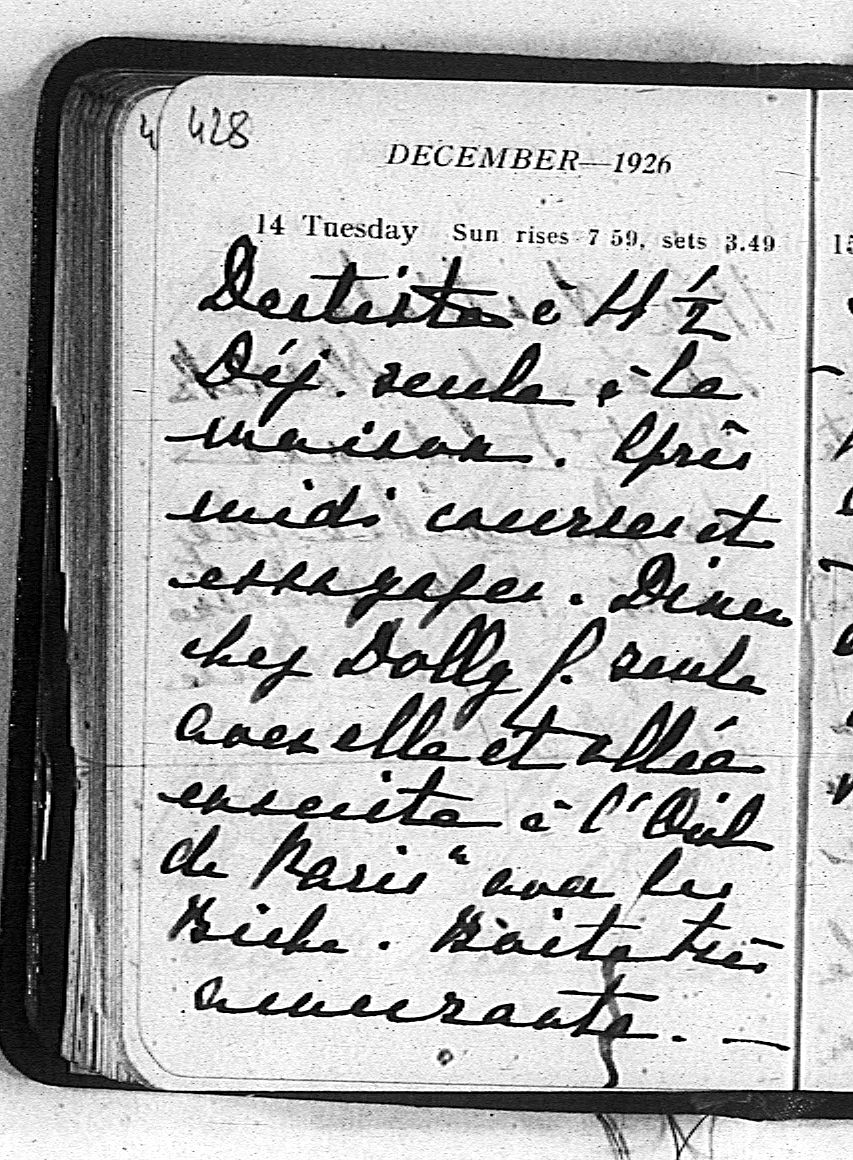 428
DECEMBER—1926
14 Tuesday Sun rises 7 59, sets 3.49
Dentiste à 4 ½
Déj. seule à la
maison. Après
midi courses et
essayages. Diner
chez Dolly J. seule
avec elle et allée
ensuite à l'"Œil
de Paris" avec les
Boite très
amusante. —
15